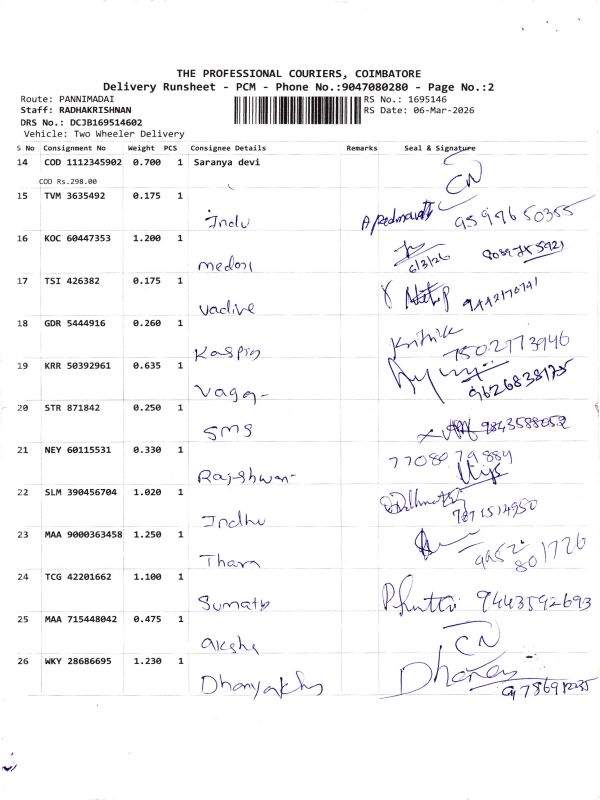 THE PROFESSIONAL COURIERS, COIMBATORE
Delivery Runsheet - PCM - Phone No.:9047080280 - Page No.:2
Route: PANNIMADAI
RS No.: 1695146
Staff: RADHAKRISHNAN
RS Date: 06-Mar-2026
DRS No.: DCJB169514602
Vehicle: Two Wheeler Delivery
S No Consignment No Weight PCS Consignee Details Remarks Seal & Signature
14 COD 1112345902 0.700 1 Saranya devi
COD Rs.298.00 CN
15 TVM 3635492 0.175 1
Indu
16 KOC 60447353 1.200 1
medosi 6/3/26
17 TSI 426382 0.175 1
vadive
18 GDR 5444916 0.260 1
Kaspin Krithik 7502773946
19 KRR 50392961 0.635 1
Vaga- 9626838175
20 STR 871842 0.250 1
SMS 9843588052
21 NEY 60115531 0.330 1
Rajeshwari 7708079884
22 SLM 390456704 1.020 1
Indhu 7871514950
23 MAA 9000363458 1.250 1
Tharn 9952801726
24 TCG 42201662 1.100 1
Sumathi 9443592693
25 MAA 715448042 0.475 1
aksha CN
26 WKY 28686695 1.230 1